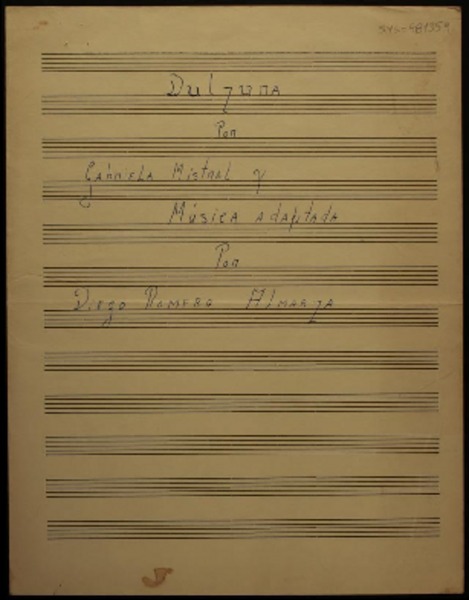 Dulzura
Por
Gabriela Mistral y
Música adaptada
Por
Diego Romero Almarza